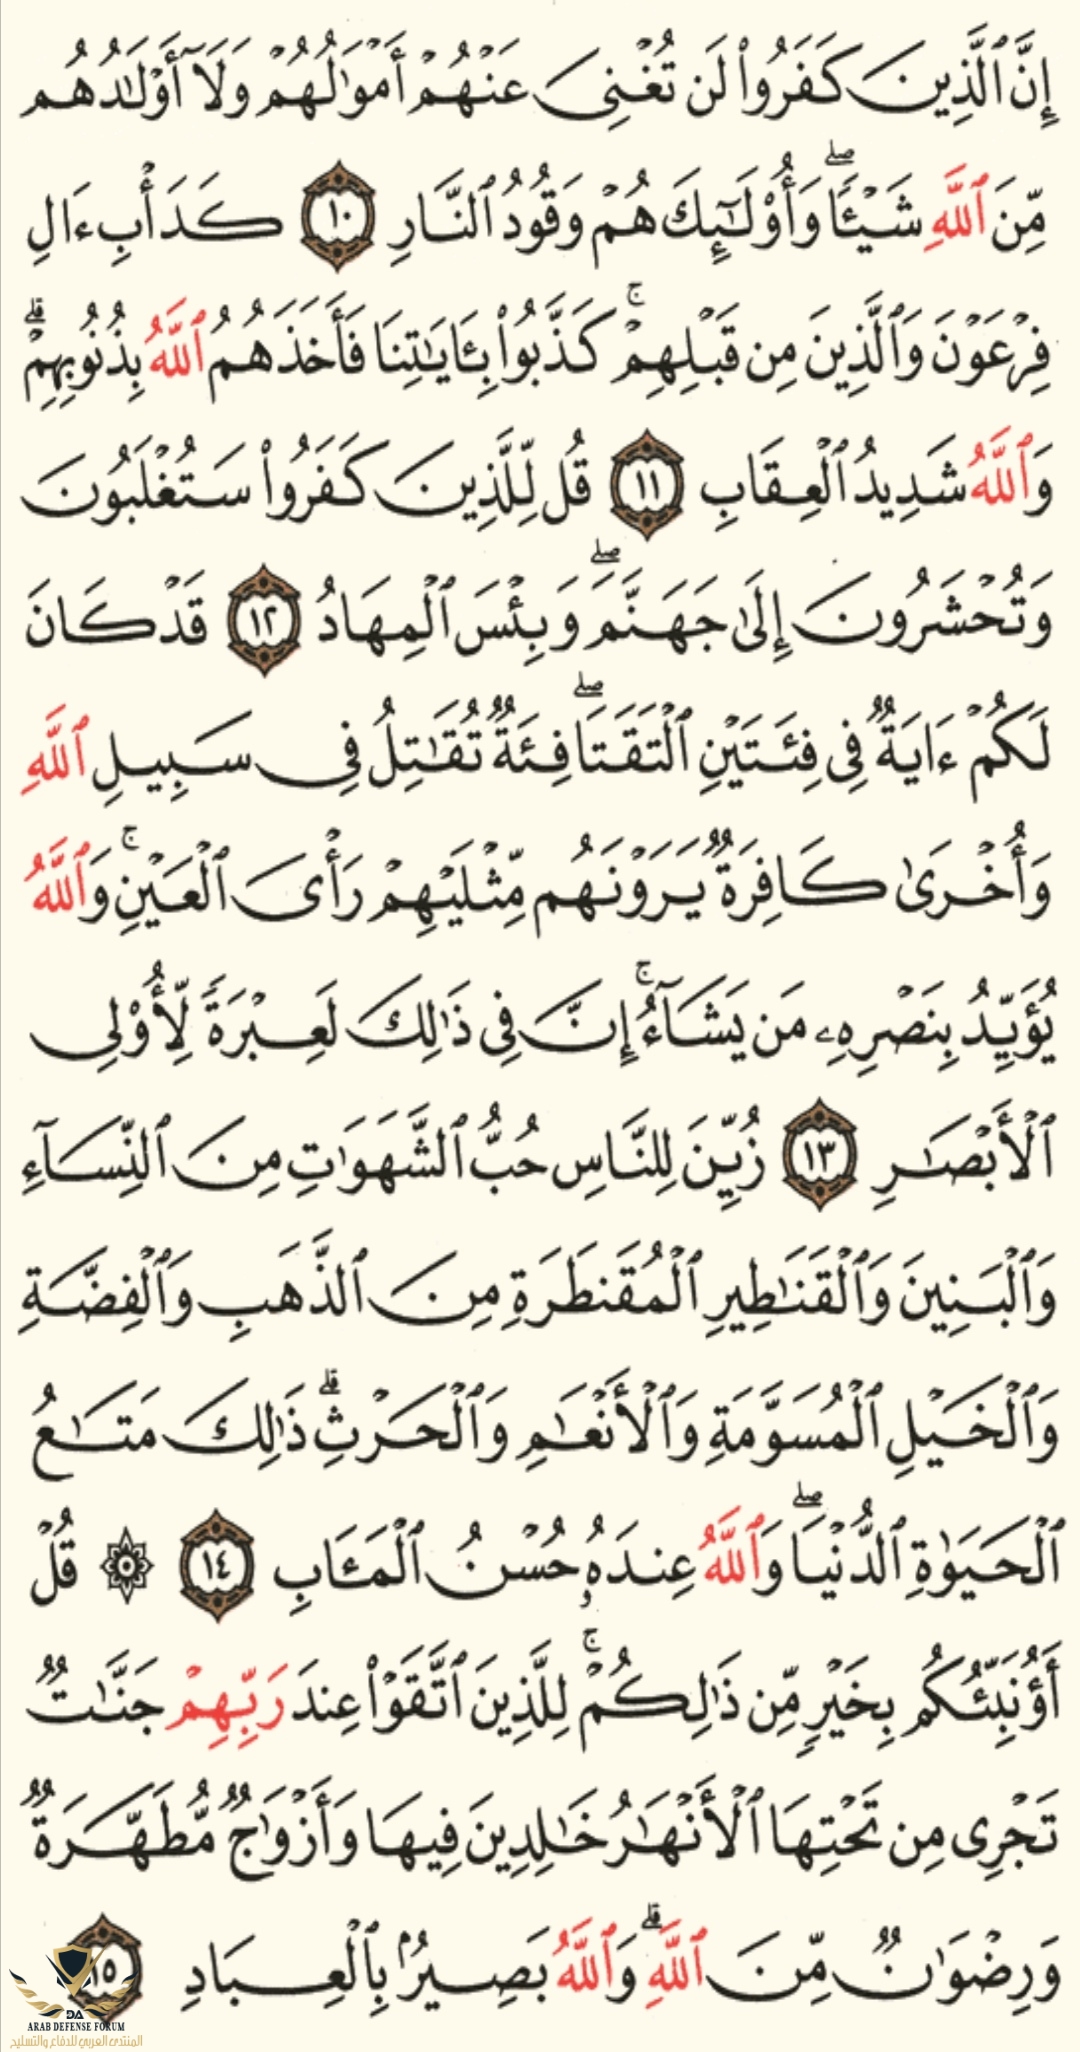 إِنَّ ٱلَّذِينَ كَفَرُوا۟ لَن تُغْنِىَ عَنْهُمْ أَمْوَٰلُهُمْ وَلَآ أَوْلَٰدُهُم
مِّنَ ٱللَّهِ شَيْـًٔا ۖ وَأُو۟لَٰٓئِكَ هُمْ وَقُودُ ٱلنَّارِ ١٠ كَدَأْبِ ءَالِ
فِرْعَوْنَ وَٱلَّذِينَ مِن قَبْلِهِمْ ۚ كَذَّبُوا۟ بِـَٔايَٰتِنَا فَأَخَذَهُمُ ٱللَّهُ بِذُنُوبِهِمْ ۗ
وَٱللَّهُ شَدِيدُ ٱلْعِقَابِ ١١ قُل لِّلَّذِينَ كَفَرُوا۟ سَتُغْلَبُونَ
وَتُحْشَرُونَ إِلَىٰ جَهَنَّمَ ۖ وَبِئْسَ ٱلْمِهَادُ ١٢ قَدْ كَانَ
لَكُمْ ءَايَةٌ فِى فِئَتَيْنِ ٱلْتَقَتَا ۖ فِئَةٌ تُقَٰتِلُ فِى سَبِيلِ ٱللَّهِ
وَأُخْرَىٰ كَافِرَةٌ يَرَوْنَهُم مِّثْلَيْهِمْ رَأْىَ ٱلْعَيْنِ ۚ وَٱللَّهُ
يُؤَيِّدُ بِنَصْرِهِۦ مَن يَشَآءُ ۚ إِنَّ فِى ذَٰلِكَ لَعِبْرَةً لِّأُو۟لِى
ٱلْأَبْصَٰرِ ١٣ زُيِّنَ لِلنَّاسِ حُبُّ ٱلشَّهَوَٰتِ مِنَ ٱلنِّسَآءِ
وَٱلْبَنِينَ وَٱلْقَنَٰطِيرِ ٱلْمُقَنطَرَةِ مِنَ ٱلذَّهَبِ وَٱلْفِضَّةِ
وَٱلْخَيْلِ ٱلْمُسَوَّمَةِ وَٱلْأَنْعَٰمِ وَٱلْحَرْثِ ۗ ذَٰلِكَ مَتَٰعُ
ٱلْحَيَوٰةِ ٱلدُّنْيَا ۖ وَٱللَّهُ عِندَهُۥ حُسْنُ ٱلْمَـَٔابِ ١٤ ۞ قُلْ
أَؤُنَبِّئُكُم بِخَيْرٍ مِّن ذَٰلِكُمْ ۚ لِلَّذِينَ ٱتَّقَوْا۟ عِندَ رَبِّهِمْ جَنَّٰتٌ
تَجْرِى مِن تَحْتِهَا ٱلْأَنْهَٰرُ خَٰلِدِينَ فِيهَا وَأَزْوَٰجٌ مُّطَهَّرَةٌ
وَرِضْوَٰنٌ مِّنَ ٱللَّهِ ۗ وَٱللَّهُ بَصِيرٌۢ بِٱلْعِبَادِ ١٥
DA
ARAB DEFENSE FORUM
المنتدى العربي للدفاع والتسليح